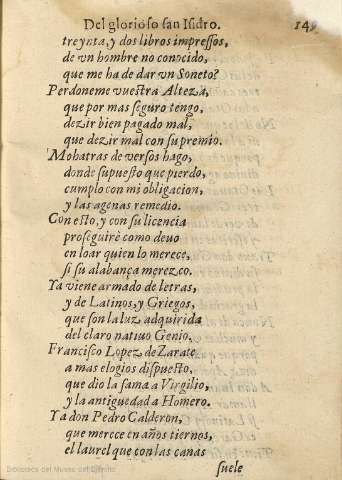 Del glorioso san Isidro. 149
treynta, y dos libros impressos,
de vn hombre no conocido,
que me ha de dar vn Soneto?
Perdoneme vuestra Alteza,
que por mas seguro tengo,
dezir bien pagado mal,
que dezir mal con su premio.
Mohatras de versos hago,
donde supuesto que pierdo,
cumplo con mi obligacion,
y las agenas remedio.
Con esto, y con su licencia
proseguirè como deuo
en loar quien lo merece,
si su alabança merezco.
Ya viene armado de letras,
y de Latinos, y Griegos,
que son la luz adquirida
del claro natiuo Genio.
Francisco Lopez de Zarate
a mas elogios dispuesto,
que dio la fama a Virgilio,
y la antiguedad a Homero.
Ya don Pedro Calderon,
que merece en años tiernos,
el laurel que con las canas
suele
Biblioteca del Museo del Ejército